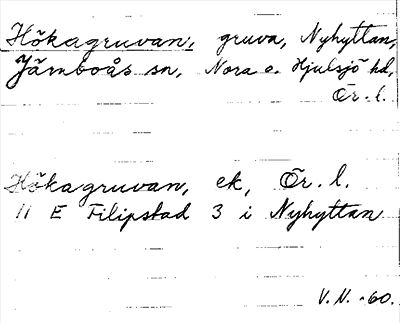 Hökagruvan, gruva, Nyhyttan,
Järnboås sn, Nora o. Hjulsjö hd,
Ör. l.
Hökagruvan, ek, Ör. l.
11 E Filipstad 3 i Nyhyttan
V. N. -60.